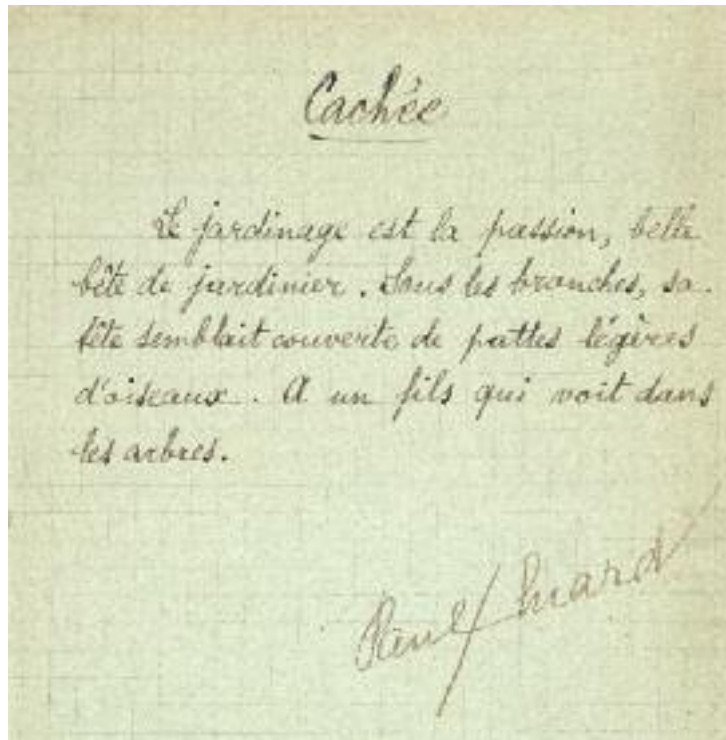 Cachée
Le jardinage est la passion, belle
bête de jardinier. Sous les branches, sa
tête semblait couverte de pattes légères
d'oiseaux. A un fils qui voit dans
les arbres.
Paul Eluard